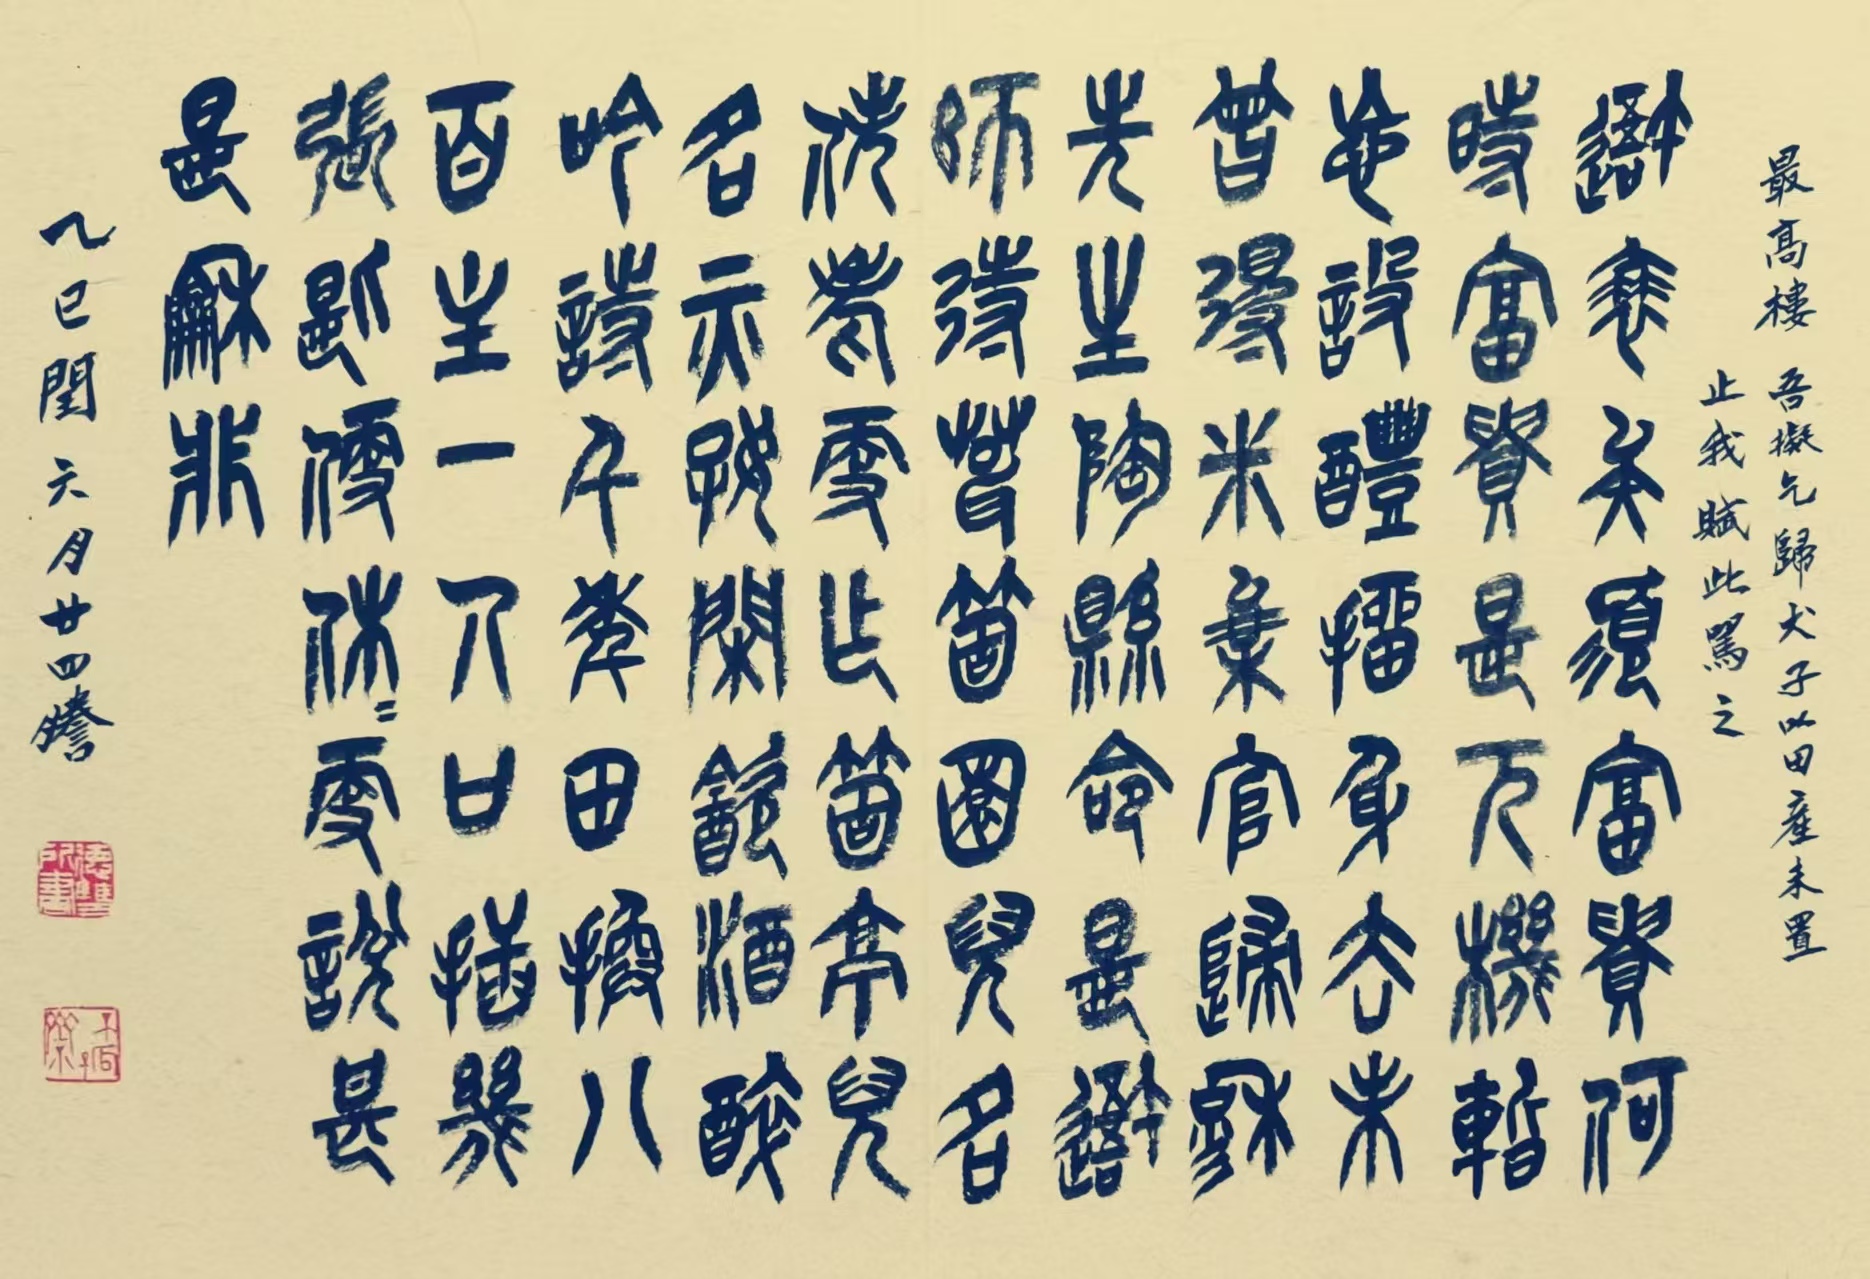 最高樓 吾擬乞歸犬子以田產未置
止我賦此罵之
吾衰矣須富貴何
時富貴是危機暫
忘設醴抽身去未
曾得米棄官歸穆
先生陶縣令是吾
師待葺箇園兒名
佚老更作箇亭兒
名亦好閑飲酒醉
吟詩千年田換八
百主一人口插幾
張匙便休=更說甚
是龢非
乙巳閏六月廿四